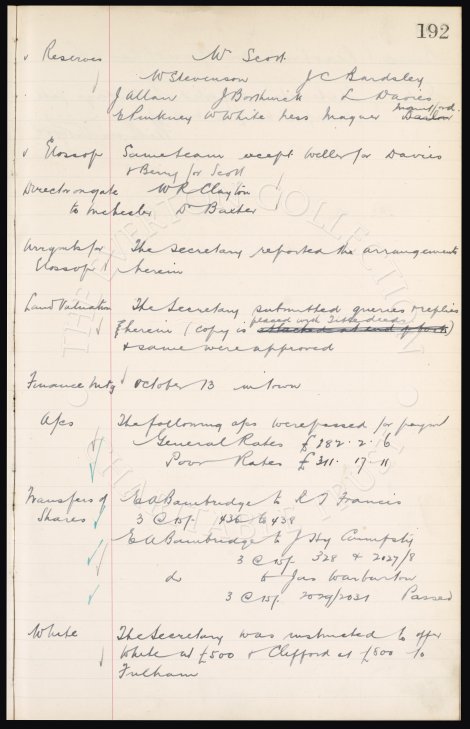 192
v Reserves W Scott
W Stevenson J C Bardsley
J Allan J Borthwick L Davies
Mountford
E Pinkney W White Hess Magner
v Glossop Same team except Weller for Davies
& Berry for Scott
Director on gate W R Clayton
to Inchester Dr Baxter
Arrgmts for The Secretary reported the arrangements
Glossop therein
Land Valuation The Secretary submitted queries & replies
placed with Title deeds
therein (copy is attached at end of book)
& same were approved
Finance mtg October 13 in town
A/cs The following a/cs were passed for paymt
General Rates £282 . 2 . 6
Poor Rates £311 . 17 . 11
Transfers of E A Bainbridge to Francis
Shares 3 @ 15/. 436 to 438
E A Bainbridge to J Hy
3 @ 15/. 328 & 2027/8
do to Jas Warburton
3 @ 15/. 2029/2031 Passed
White The Secretary was instructed to offer
White at £500 & Clifford at £800 to
Fulham
THE EVERTON COLLECTION
CHARITABLE TRUST